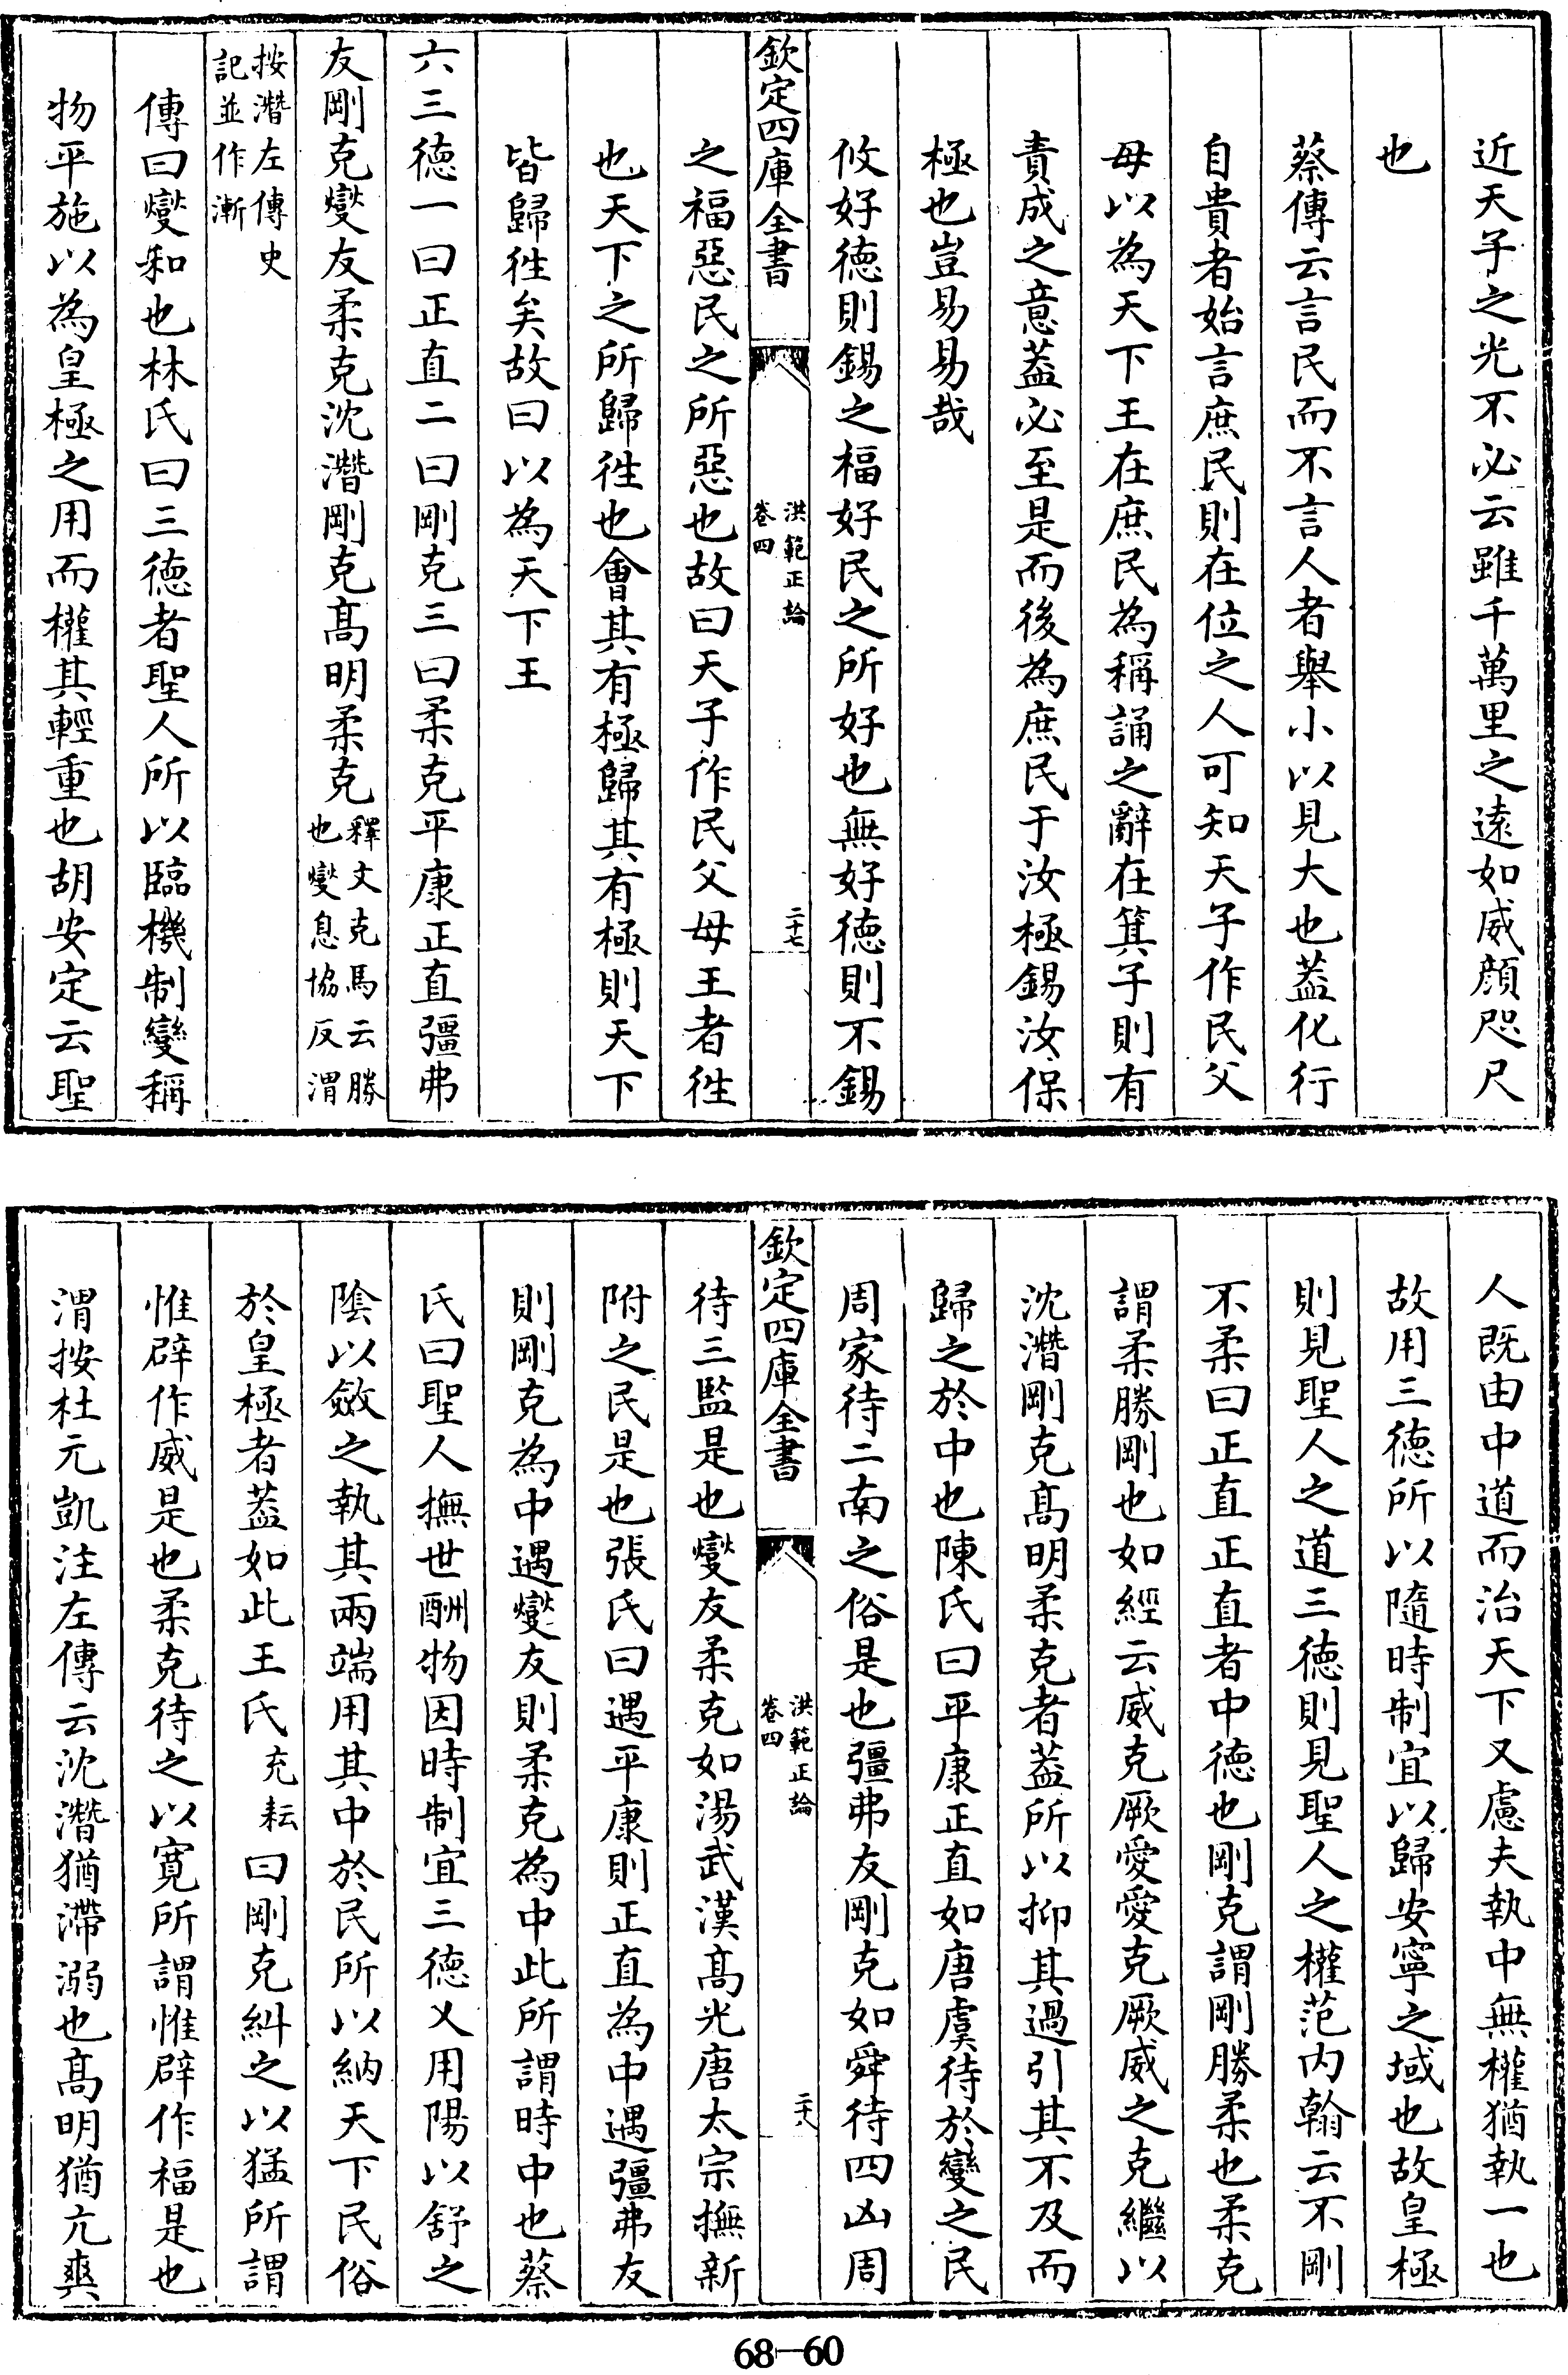 近天子之光不必云雖千萬里之遠如威顔咫尺
也
蔡傳云言民而不言人者舉小以見大也葢化行
自貴者始言庶民則在位之人可知天子作民父
母以為天下王在庶民為稱誦之辭在箕子則有
責成之意葢必至是而後為庶民于汝極錫汝保
極也豈易易哉
攸好徳則錫之福好民之所好也無好徳則不錫
欽定四庫全書
洪範正論
卷四
二十七
之福惡民之所惡也故曰天子作民父母王者徃
也天下之所歸徃也會其有極歸其有極則天下
皆歸徃矣故曰以為天下王
六三徳一曰正直二曰剛克三曰柔克平康正直彊弗
友剛克燮友柔克沈潛剛克髙明柔克
釋文克馬云勝
也燮息協反渭
按潛左傳史
記並作漸
傳曰燮和也林氏曰三徳者聖人所以臨機制變稱
物平施以為皇極之用而權其輕重也胡安定云聖
人既由中道而治天下又慮夫執中無權猶執一也
故用三徳所以隨時制宜以歸安寧之域也故皇極
則見聖人之道三徳則見聖人之權范内翰云不剛
不柔曰正直正直者中徳也剛克謂剛勝柔也柔克
謂柔勝剛也如經云威克厥愛愛克厥威之克繼以
沈潛剛克髙明柔克者葢所以抑其過引其不及而
歸之於中也陳氏曰平康正直如唐虞待於變之民
周家待二南之俗是也彊弗友剛克如舜待四凶周
欽定四庫全書
洪範正論
卷四
二十八
待三監是也燮友柔克如湯武漢髙光唐太宗撫新
附之民是也張氏曰遇平康則正直為中遇彊弗友
則剛克為中遇燮友則柔克為中此所謂時中也蔡
氏曰聖人撫世酬物因時制宜三徳乂用陽以舒之
隂以斂之執其兩端用其中於民所以納天下民俗
於皇極者葢如此王氏充耘曰剛克糾之以猛所謂
惟辟作威是也柔克待之以寛所謂惟辟作福是也
渭按杜元凱注左傳云沈潛猶滯溺也髙明猶亢爽
68—60